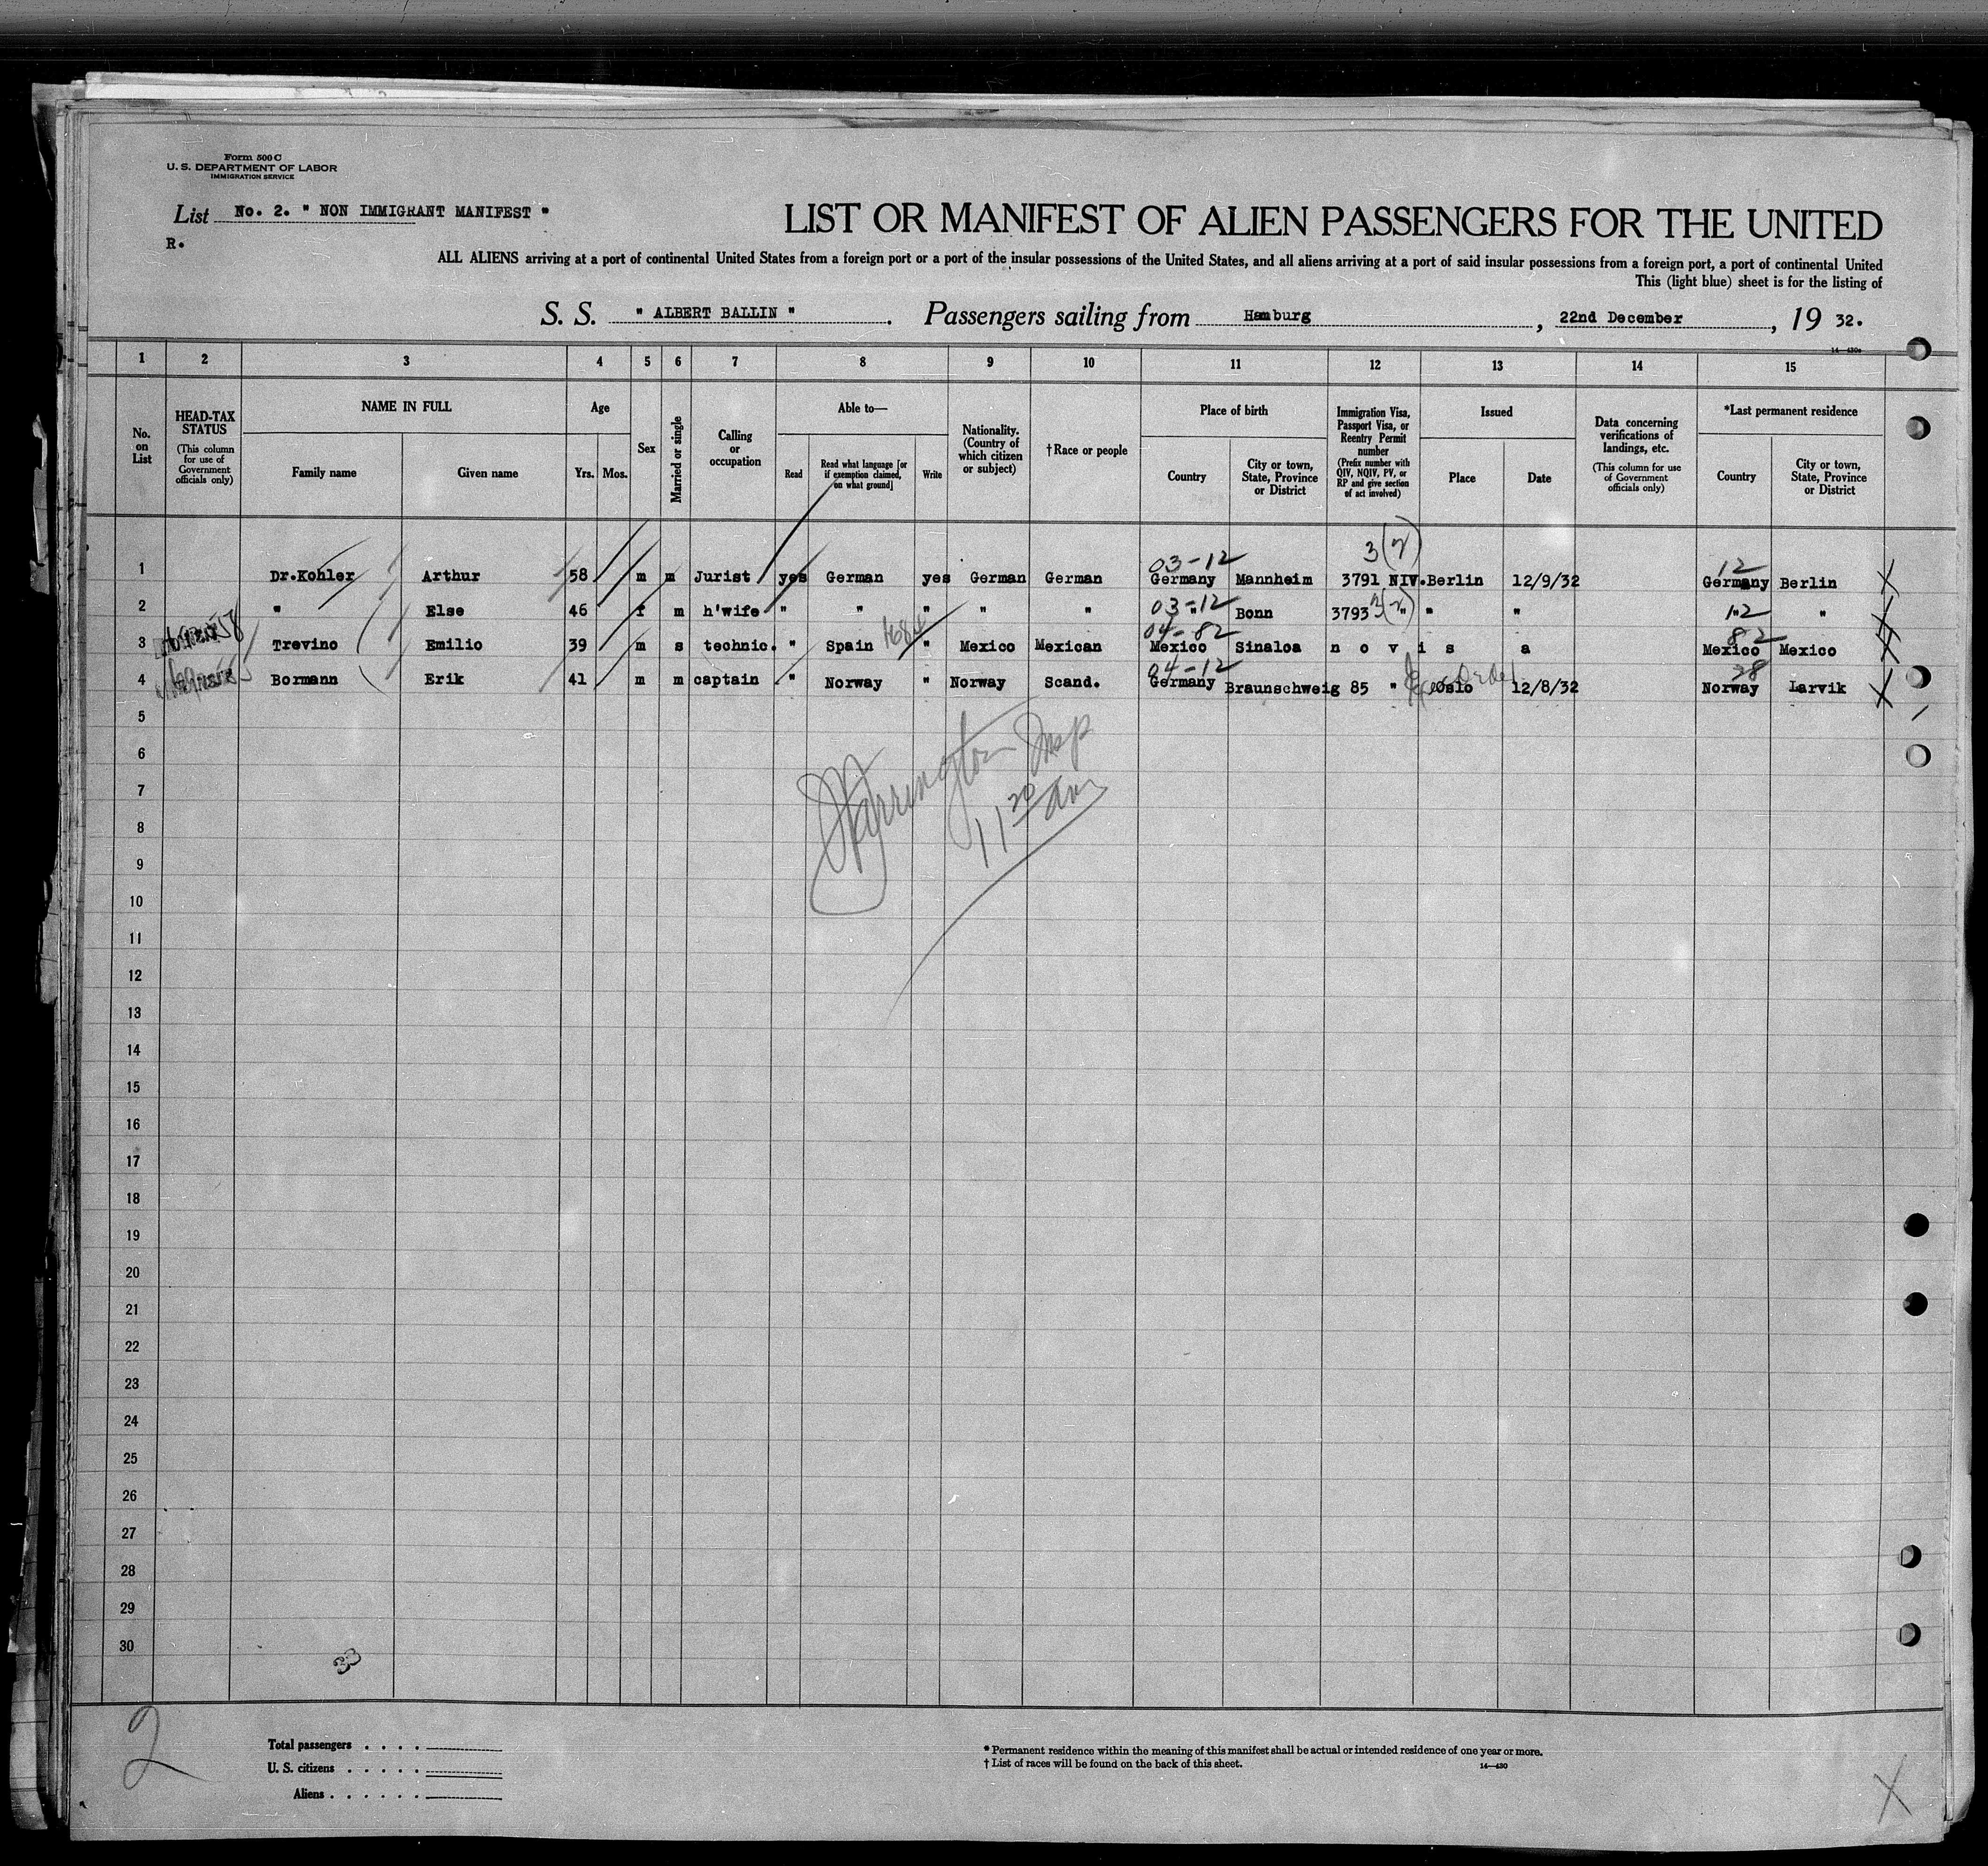 Form 500 C
U. S. DEPARTMENT OF LABOR
IMMIGRATION SERVICE
List No. 2. " NON IMMIGRANT MANIFEST "
R.
LIST OR MANIFEST OF ALIEN PASSENGERS FOR THE UNITED
ALL ALIENS arriving at a port of continental United States from a foreign port or a port of the insular possessions of the United States, and all aliens arriving at a port of said insular possessions from a foreign port, a port of continental United
This (light blue) sheet is for the listing of
S. S. " ALBERT BALLIN ". Passengers sailing from Hamburg, 22nd December, 19 32.
1 2 3 4 5 6 7 8 9 10 11 12 13 14 15
No. on List
HEAD-TAX STATUS (This column for use of Government officials only)
NAME IN FULL
Family name
Given name
Age
Yrs. Mos.
Sex
Married or single
Calling or occupation
Able to—
Read
Read what language [or if exemption claimed, on what ground]
Write
Nationality. (Country of which citizen or subject)
†Race or people
Place of birth
Country
City or town, State, Province or District
Immigration Visa, Passport Visa, or Reentry Permit number (Prefix number with QIV, NQIV, PV, or RP and give section of act involved)
Issued
Place
Date
Data concerning verifications of landings, etc. (This column for use of Government officials only)
*Last permanent residence
Country
City or town, State, Province or District
03-12 12
1 Dr.Kohler Arthur 58 m m Jurist yes German yes German German Germany Mannheim 3791 NIV. Berlin 12/9/32 Germany Berlin
03-12 12
2 " Else 46 f m h'wife " " " " " " Bonn 3793 " " " " "
04-82 82
3 Trevino Emilio 39 m s technic. " Spain " Mexico Mexican Mexico Sinaloa n o v i s a Mexico Mexico
04-12 28
4 Bormann Erik 41 m m captain " Norway " Norway Scand. Germany Braunschweig 85 " Oslo 12/8/32 Norway Larvik
5
6
7
8
9
10
11
12
13
14
15
16
17
18
19
20
21
22
23
24
25
26
27
28
29
30
33
2
Total passengers . . . .
U. S. citizens . . . . .
Aliens . . . . . .
* Permanent residence within the meaning of this manifest shall be actual or intended residence of one year or more.
† List of races will be found on the back of this sheet.
14—430
X